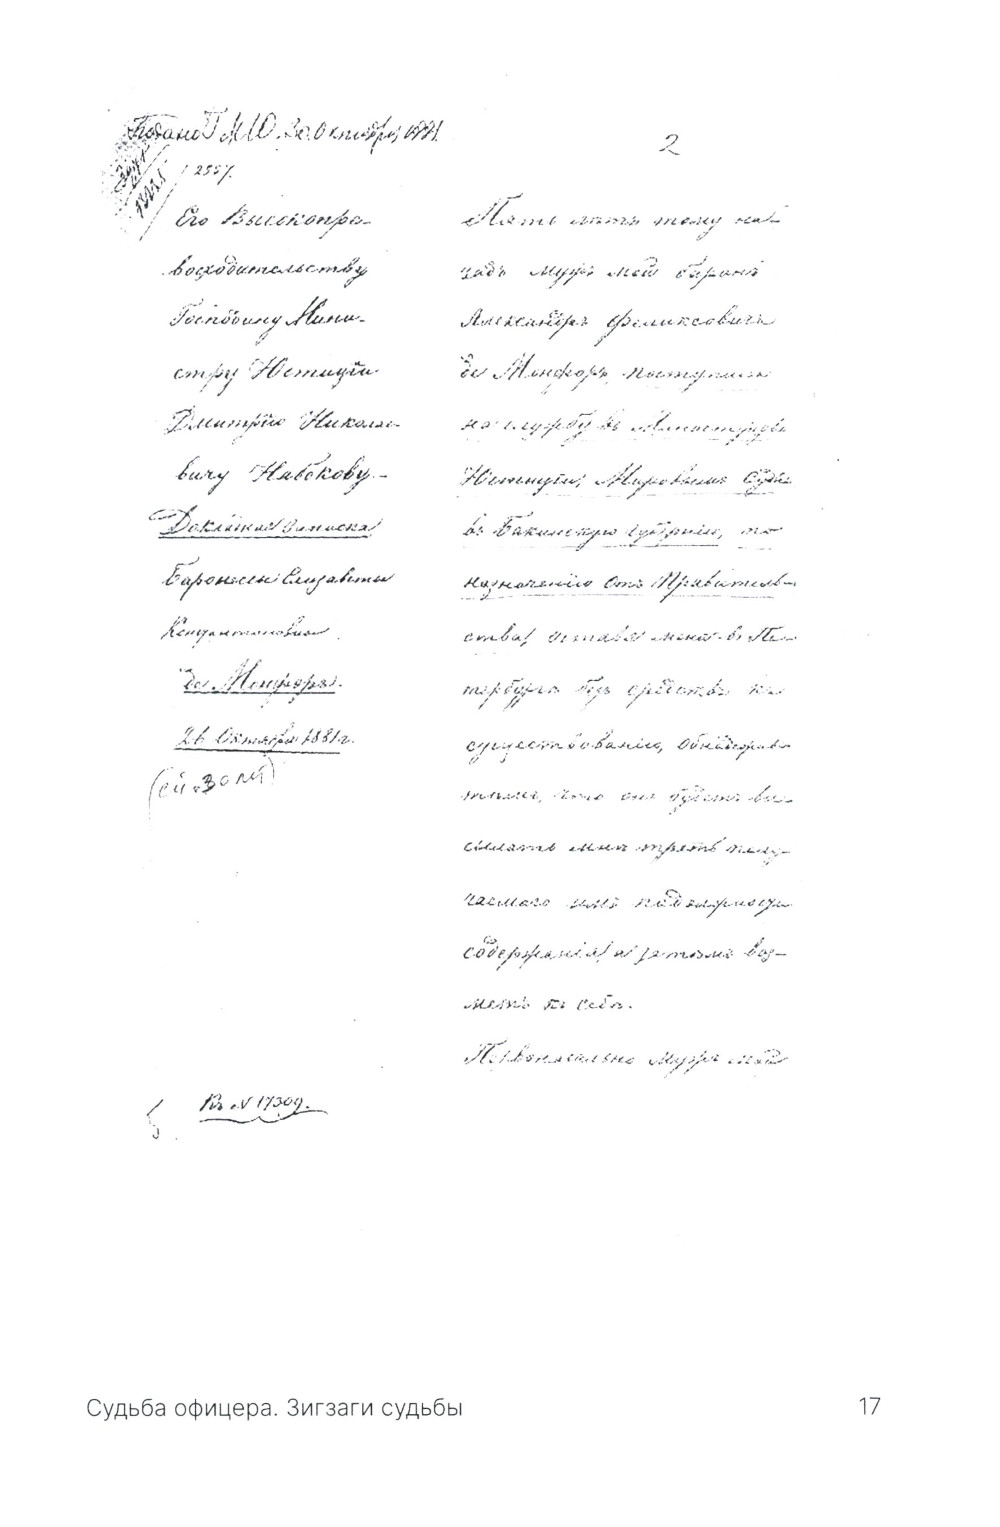 Подано Г. М. Ю. 30 Октября 1881.
2
1 2557.
Его Высокопре-
восходительству
Господину Мини-
стру Юстиціи
Дмитрію Николае-
вичу Набокову.-
Докладная записка
Баронессы Елизаветы
Константиновны
де Монфоръ.
26 Октября 1881 г.
Къ № 17309.
Пять лѣтъ тому на-
задъ мужъ мой баронъ
Александръ Феликсовичъ
де Монфоръ, поступилъ
на службу въ Министерство
Юстиціи, Мировымъ Судьею
въ Бакинскую губернію, по
назначенію отъ Правитель-
ства, оставя меня въ Пе-
тербургѣ безъ средствъ къ
существованію, обнадежив
тѣмъ, что онъ будетъ вы-
сылать мнѣ треть полу-
чаемаго имъ
содержанія, а затѣмъ воз-
метъ къ себѣ.
Первоначально мужъ мой
Судьба офицера. Зигзаги судьбы
17